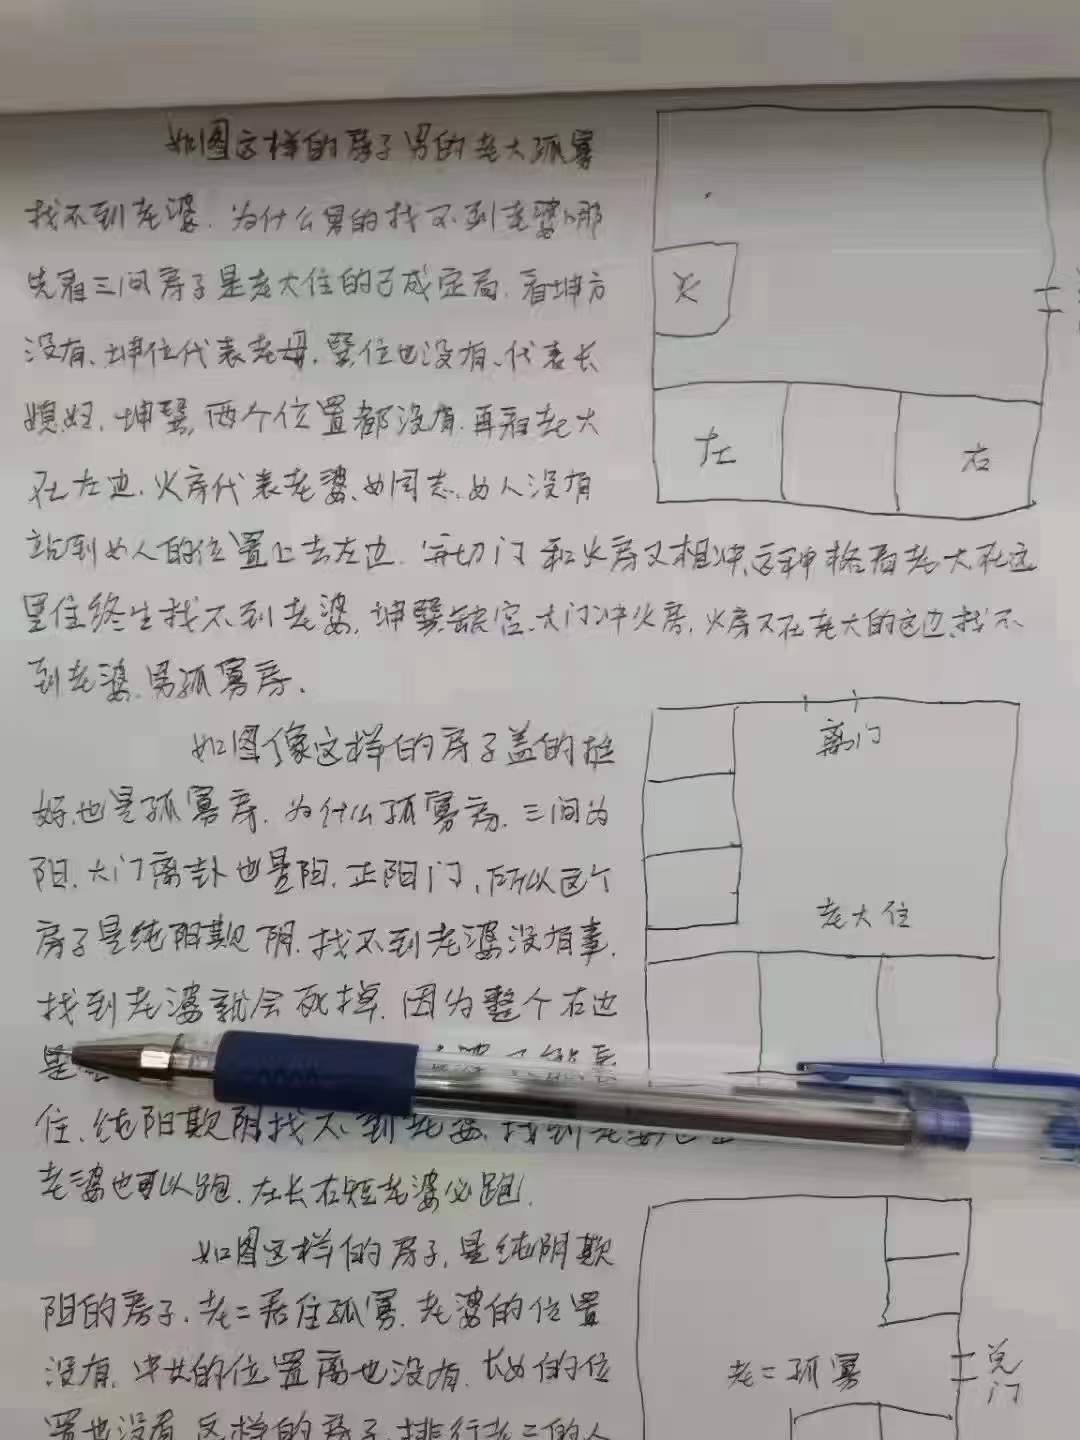 如图这样的房子男的老大孤寡
找不到老婆.为什么男的找不到老婆哪
先看三间房子是老大住的已成定局.看坤方
没有、坤位代表老母.巽位也没有、代表长
媳妇.坤巽,两个位置都没有.再看老大
在左边.火房代表老婆、女同志、女人没有
站到女人的位置上去左边.再切门和火房又相冲、这种格局老大在这
里住终生找不到老婆.坤巽缺宫、大门冲火房.火房不在老大的这边、找不
到老婆.男孤寡房.
火
左
右
如图像这样的房子盖的挺
好.也是孤寡房.为什么孤寡房.三间为
阳.大门离卦也是阳.正阳门,所以这个
房子是纯阳欺阴.找不到老婆没有事.
找到老婆就会死掉.因为整个右边
是
住.纯阳欺阴找不到老婆.找到老婆
老婆也可以跑.左长右短老婆必跑.
离门
老大住
如图这样的房子.是纯阴欺
阳的房子.老二居住孤寡.老婆的位置
没有.中女的位置离也没有.长女的位
置也没有.这样的房子.排行老二的人
老二孤寡
兑
门